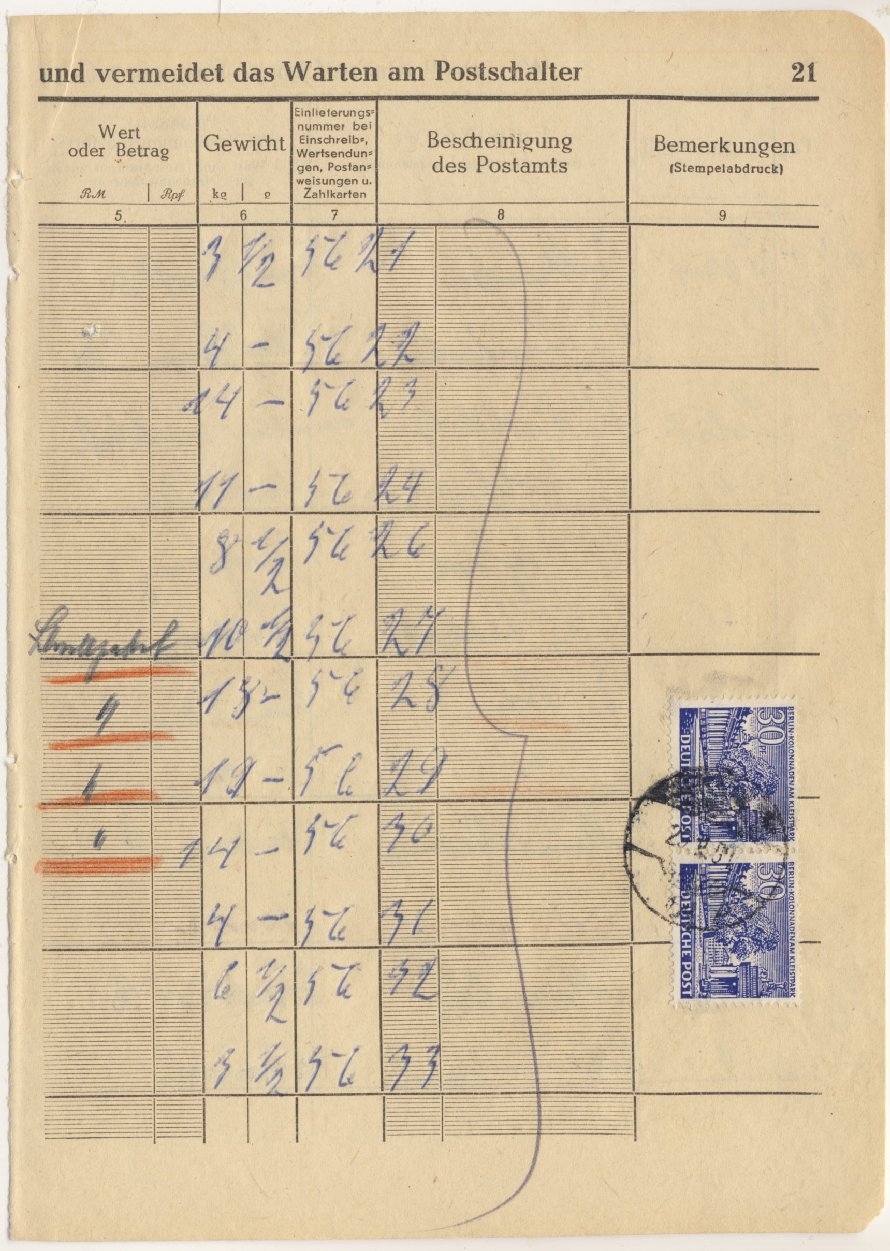 und vermeidet das Warten am Postschalter 21
Wert
oder Betrag
RM Rpf
5
Gewicht
kg g
6
Einlieferungs=
nummer bei
Einschreib=,
Wertsendun=
gen, Postan=
weisungen u.
Zahlkarten
7
Bescheinigung
des Postamts
8
Bemerkungen
(Stempelabdruck)
9
3 1/2 56 21
4 – 56 22
14 – 56 23
11 – 56 24
8 1/2 56 26
10 1/2 56 27
18 – 56 28
19 – 56 29
14 – 56 30
4 – 56 31
6 1/2 56 32
3 1/2 56 33
30 PF
BERLIN·KOLONNADEN AM KLEISTPARK
DEUTSCHE POST
30
BERLIN·KOLONNADEN AM KLEISTPARK
DEUTSCHE POST